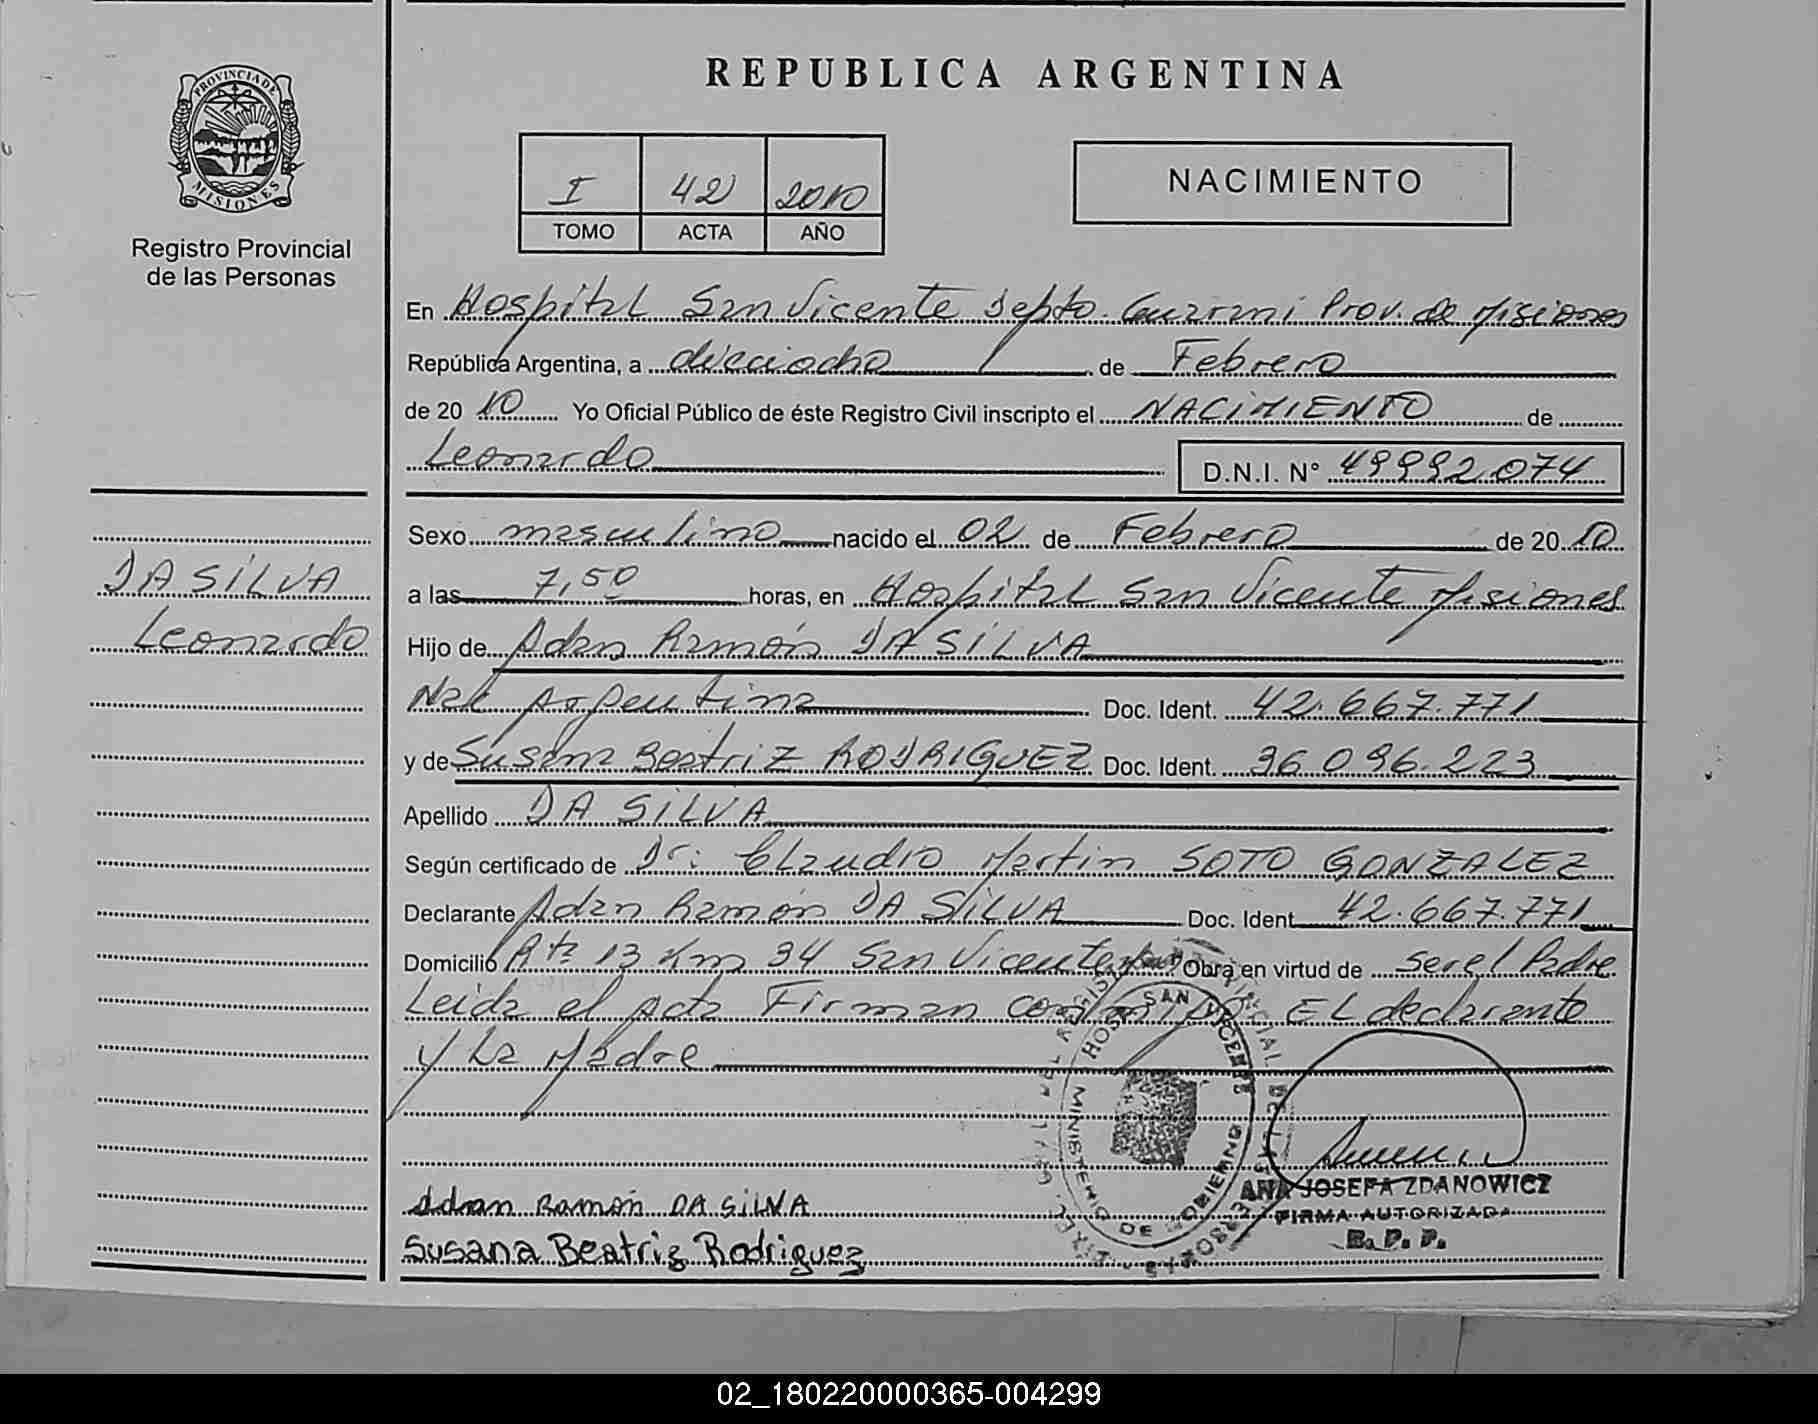 REPUBLICA ARGENTINA
PROVINCIA DE MISIONES
Registro Provincial
de las Personas
I 42 2010
TOMO ACTA AÑO
NACIMIENTO
En Hospital San Vicente Depto. Guarani Prov. de Misiones
República Argentina, a dieciocho de Febrero
de 2010 Yo Oficial Público de éste Registro Civil inscripto el NACIMIENTO de
Leonardo D.N.I. N° 49992074
DA SILVA
Leonardo
Sexo masculino nacido el 02 de Febrero de 2010
a las 7,50 horas, en Hospital San Vicente Misiones
Hijo de Adan Ramón DA SILVA
Nac Argentina Doc. Ident. 42.667.771
y de Susana Beatriz RODRIGUEZ Doc. Ident. 36.096.223
Apellido DA SILVA
Según certificado de Dr: Claudio Martin SOTO GONZALEZ
Declarante Adan Ramón DA SILVA Doc. Ident. 42.667.771
Domicilio Rta 13 Km 34 San Vicente Obra en virtud de ser el Padre
Leida el Acta Firman conmigo EL declarante
y La Madre
HOSP. SAN VICENTE
MINISTERIO DE GOBIERNO
ANA JOSEFA ZDANOWICZ
FIRMA AUTORIZADA
R. P. P.
Adan Ramón DA SILVA
Susana Beatriz Rodriguez
02_180220000365-004299